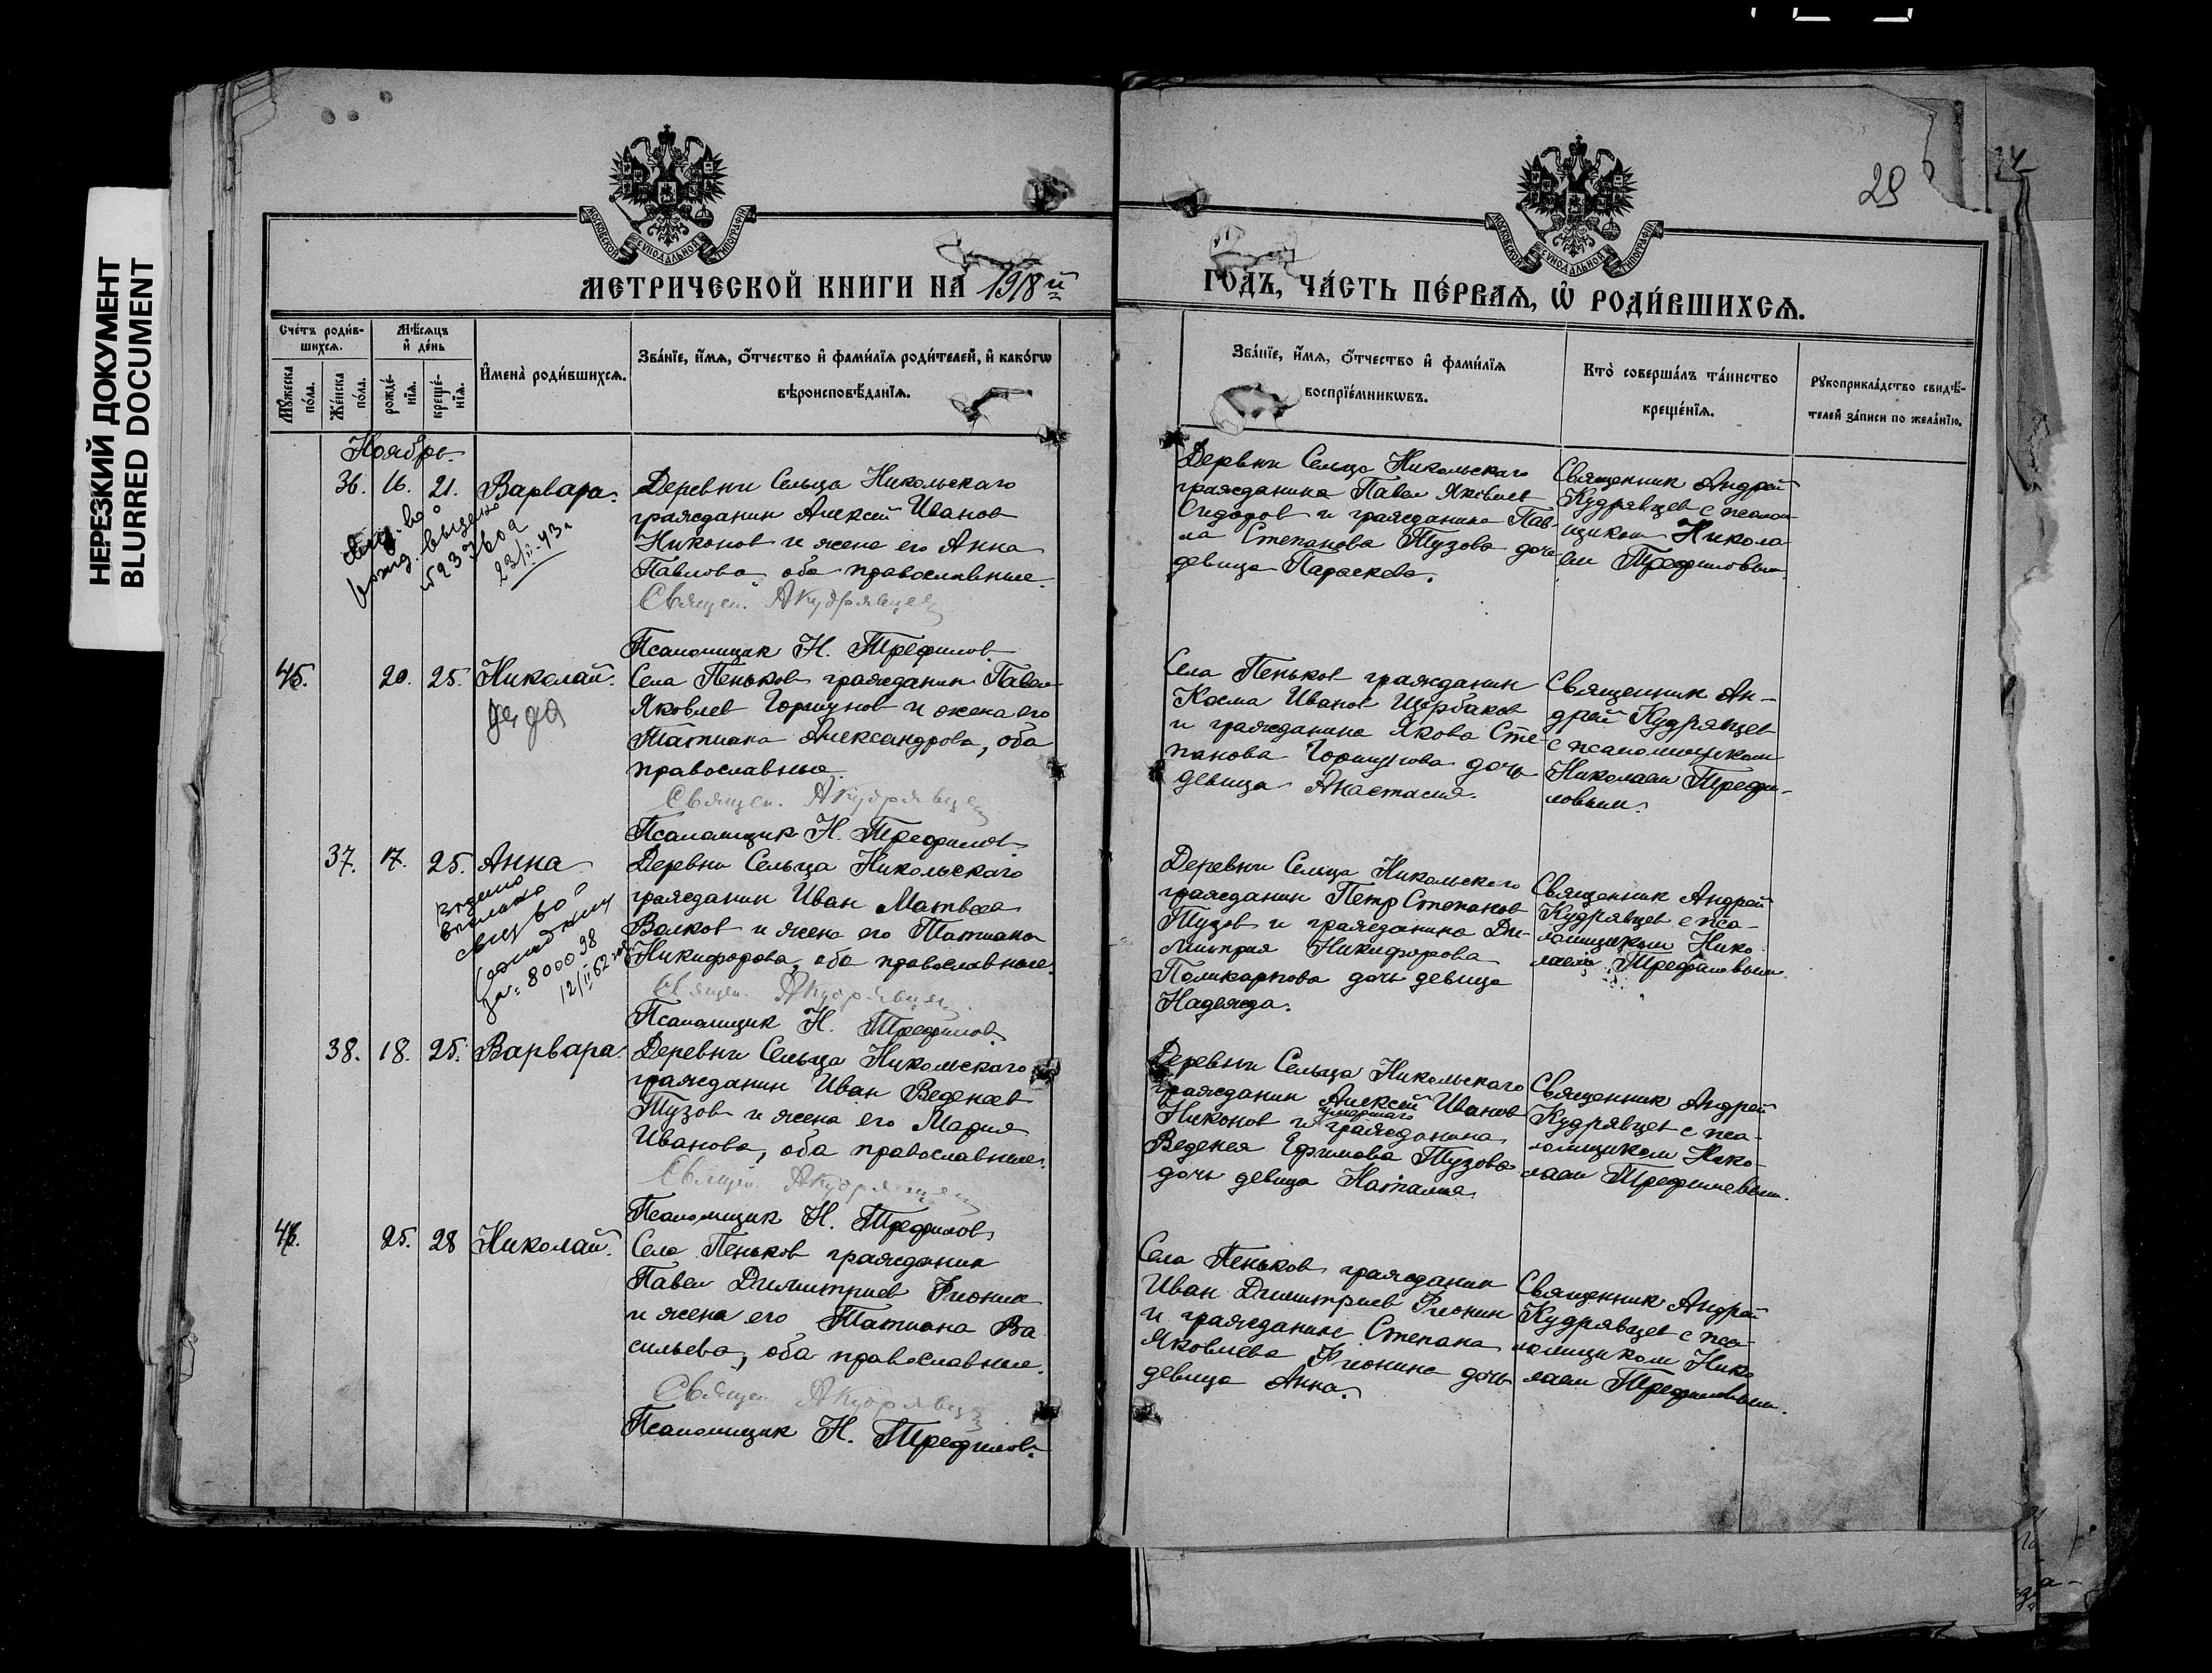 НЕРЕЗКИЙ ДОКУМЕНТ
BLURRED DOCUMENT
МОСКОВСКОЙ СУНОДАЛЬНОЙ ТИПОГРАФІИ
МЕТРИЧЕСКОЙ КНИГИ НА 1918 й
Счетъ родив-
шихся.
Мѣсяцъ
и день
Мужеска
пола.
Женска
пола.
рожде-
нія.
креще-
нія.
Имена родившихся.
Званіе, имя, отчество и фамилія родителей, и какогω
вѣроисповѣданія.
Ноябрь
36. 16. 21. Варвара.
Деревни Сельца Никольскаго
гражданин Алексей Иванов
Никонов и жена его Анна
Павлова, оба православные.
Священ. АКудрявцев
Псаломщик Н. Трефилов.
23/II-43г
45. 20. 25. Николай.
Села Пеньков гражданин Павел
Яковлев Горшунов и жена его
Татиана Александрова, оба
православные.
Священ. АКудрявцев
Псаломщик Н. Трефилов.
37. 17. 25. Анна
Деревни Сельца Никольскаго
гражданин Иван Матвеев
Волков и жена его Татиана
Никифорова, оба православные.
Священ. АКудрявцев
Псаломщик Н. Трефилов.
800098
12/II 62
38. 18. 25. Варвара.
Деревни Сельца Никольскаго
гражданин Иван Веденеев
Тузов и жена его Мария
Иванова, оба православные.
Священ. АКудрявцев
Псаломщик Н. Трефилов.
46. 25. 28 Николай.
Села Пеньков гражданин
Павел Димитриев Фионин
и жена его Татиана Ва
сильева, оба православные.
Священ. АКудрявцев
Псаломщик Н. Трефилов.
29
МОСКОВСКОЙ СУНОДАЛЬНОЙ ТИПОГРАФІИ
ГОДЪ, ЧАСТЬ ПЕРВАЯ, Ѡ РОДИВШИХСЯ.
Званіе, имя, отчество и фамилія
воспріемникωвъ.
Кто совершалъ таинство
крещенія.
Рукоприкладство свидѣ-
телей записи по желанію.
Деревни Сельца Никольскаго
гражданина Павел Яковлев
Сидоров и гражданина Пав-
ла Степанова Тузова дочь
девица Параскева.
Священник Андрей
Кудрявцев с псалом
щиком Никола
ем Трефиловым.
Села Пеньков гражданин
Косма Иванов Щербаков
и гражданина Якова Сте-
панова Горшунова дочь
девица Анастасия.
Священник Ан-
дрей Кудрявцев
с псаломщиком
Николаем Трефи-
ловым.
Деревни Сельца Никольскаго
гражданин Петр Степанов
Тузов и гражданина Ди-
митрия Никифорова
Поликарпова дочь девица
Надежда.
Священник Андрей
Кудрявцев с пса-
ломщиком Нико
лаем Трефиловым.
Деревни Сельца Никольскаго
гражданин Алексей Иванов
Никонов и умершаго гражданина
Веденея Ефимова Тузова
дочь девица Наталия.
Священник Андрей
Кудрявцев с пса-
ломщиком Нико-
лаем Трефиловым.
Села Пеньков гражданин
Иван Димитриев Фионин
и гражданина Степана
Яковлева Фионина дочь
девица Анна.
Священник Андрей
Кудрявцев с пса-
ломщиком Нико
лаем Трефиловым.